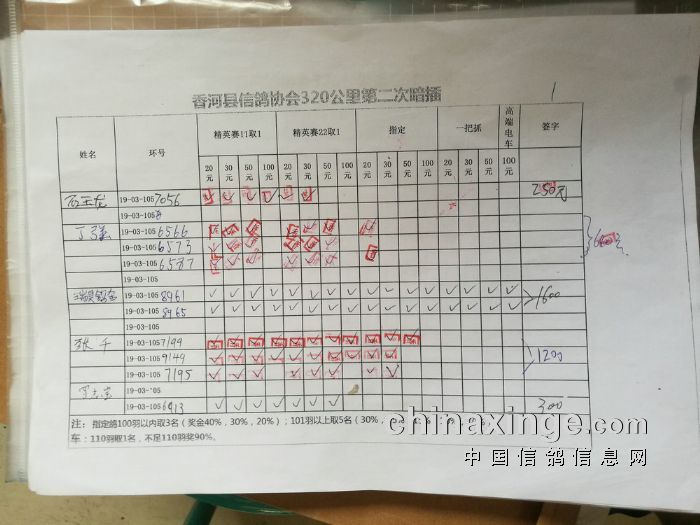 香河县信鸽协会320公里第二次暗插
1
姓名 环号 精英赛11取1 精英赛22取1 指定 一把抓 高端电车 签字
20元 30元 50元 100元 20元 30元 50元 100元 20元 30元 50元 100元 20元 30元 50元 100元
19-03-1057056 250元
19-03-105
19-03-1056566
19-03-1056573
19-03-1056587
19-03-105
19-03-1058961 1600
19-03-1058965
19-03-105
张千 19-03-1057199
19-03-1059149 1200
19-03-1057195
19-03-105
19-03-1056913 300
注：指定鸽100羽以内取3名（奖金40%，30%，20%）；101羽以上取5名（30%，
车：110羽取1名，不足110羽奖90%。
chinaxinge.com
中国信鸽信息网